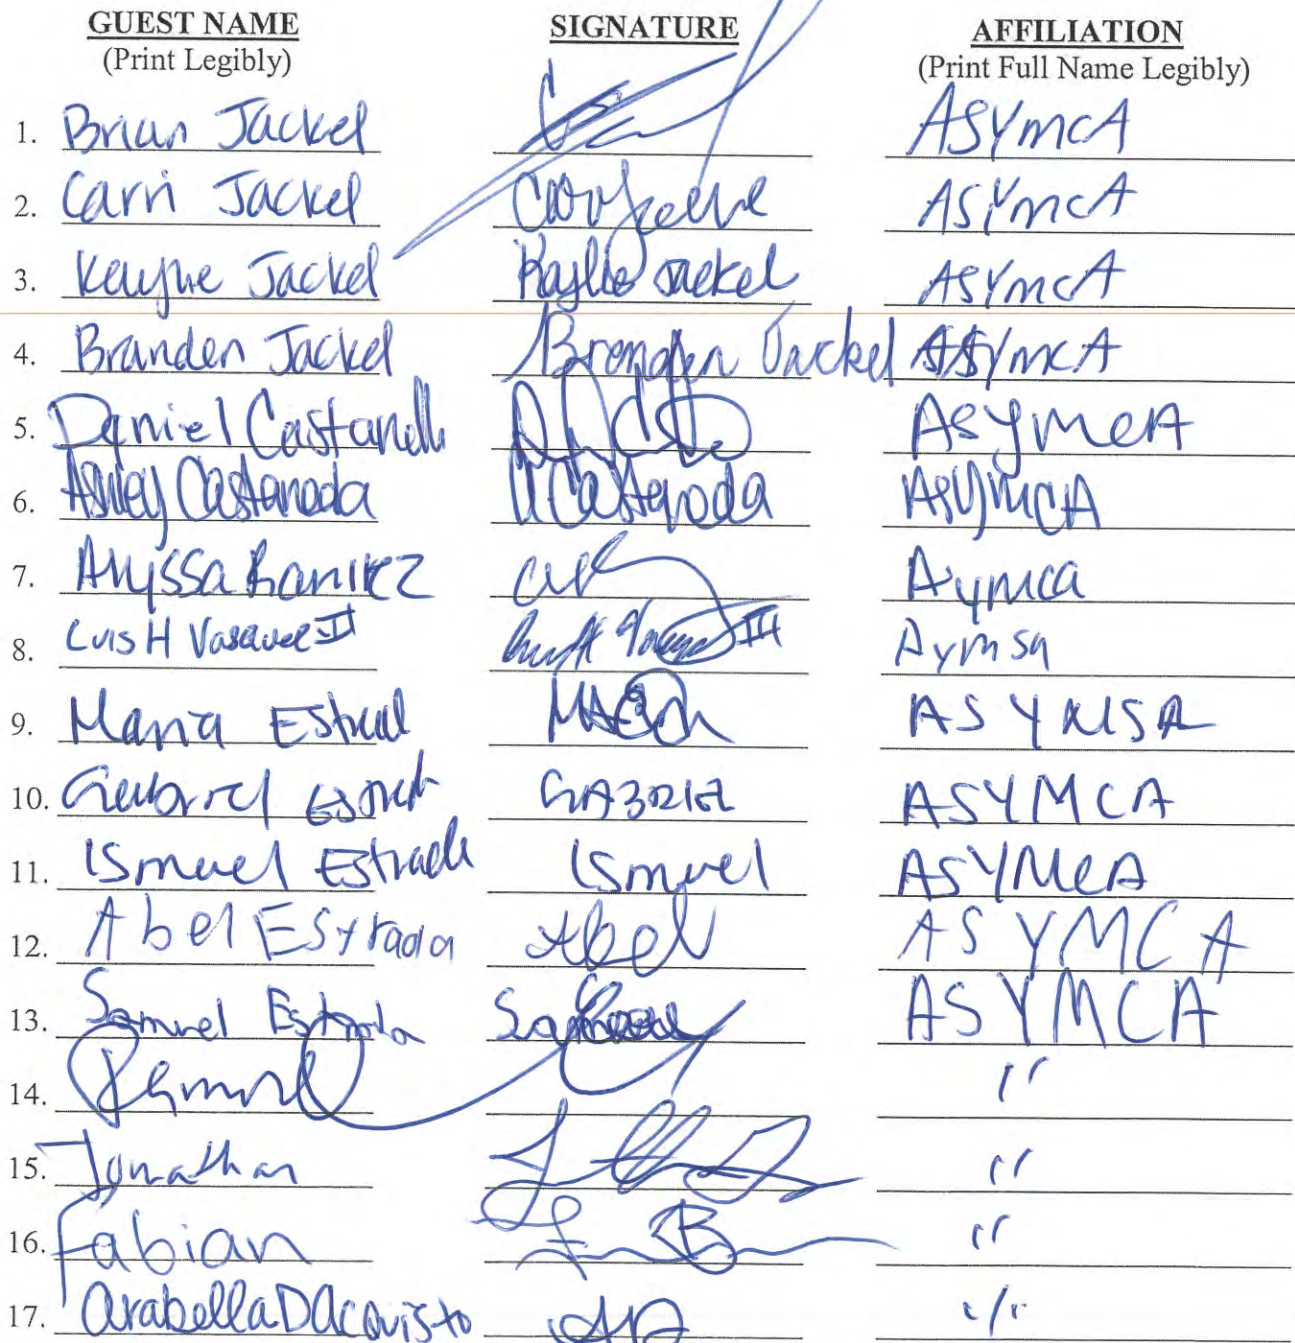 GUEST NAME SIGNATURE AFFILIATION
(Print Legibly) (Print Full Name Legibly)
1. Brian Jackel ASYmcA
2. Carri Jackel ASYmcA
3. Jackel Kaylie Jackel ASYmcA
4. Branden Jackel Brenden Jackel ASYmcA
5. Daniel ASYMCA
6. Ashley Castaneda ACastaneda ASYMCA
7. Alyssa Ramirez Aymca
8. Luis H III Aymsa
9. Maria ASYMSA
10. Gabriel GABRIEL ASYMCA
11. Ismael Estrada Ismael ASYMCA
12. Abel Estrada Abel ASYMCA
13. Samuel Estrada ASYMCA
14. "
15. Jonathan "
16. Fabian "
17. Arabella DAcquisto AD "